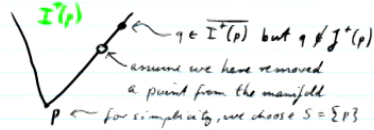 I⁺(p)
q ∈ \overline{I⁺(p)} but q ∉ J⁺(p)
assume we have removed
a point from the manifold
p for simplicity, we choose S = {p}